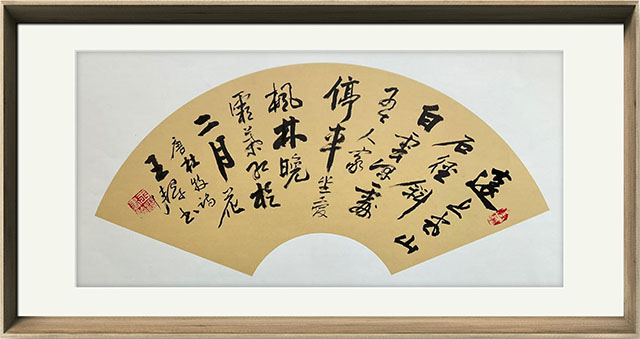 遠上寒山
石徑斜
白雲深處
有人家
停車坐愛
楓林晚
霜葉紅於
二月花
唐杜牧詩
王書